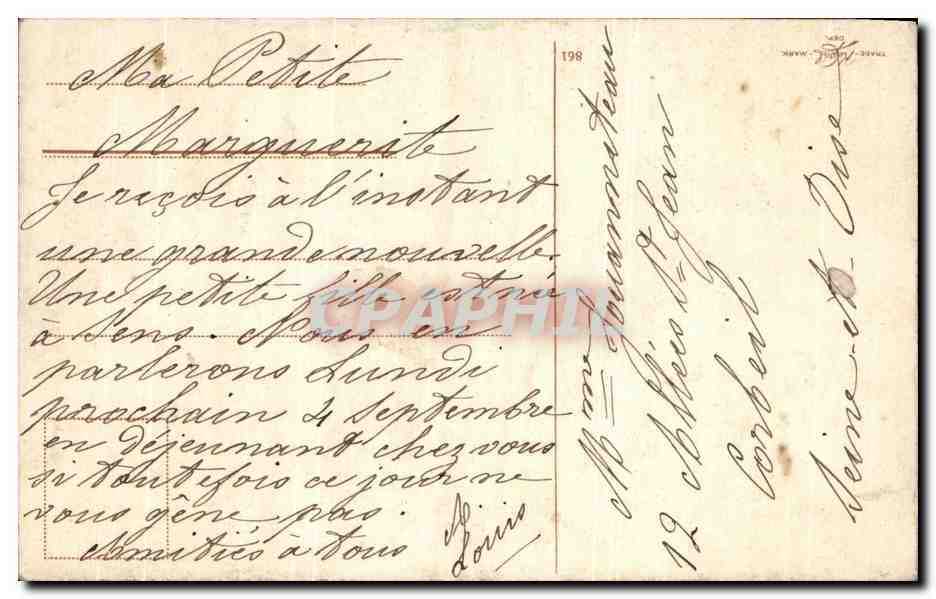 Ma Petite
Marguerite
Je reçois à l'instant
une grande nouvelle.
Une petite fille est né
à Sens. Nous en
parlerons Lundi
prochain 4 Septembre
en déjeunant chez vous
si toutefois ce jour ne
vous gêne pas.
Amitiés à tous
A. Louis
Mme
12 Allées St Jean
Corbeil
Seine-et-Oise
861
TRADE MARK
DEP.
CPAPHIL